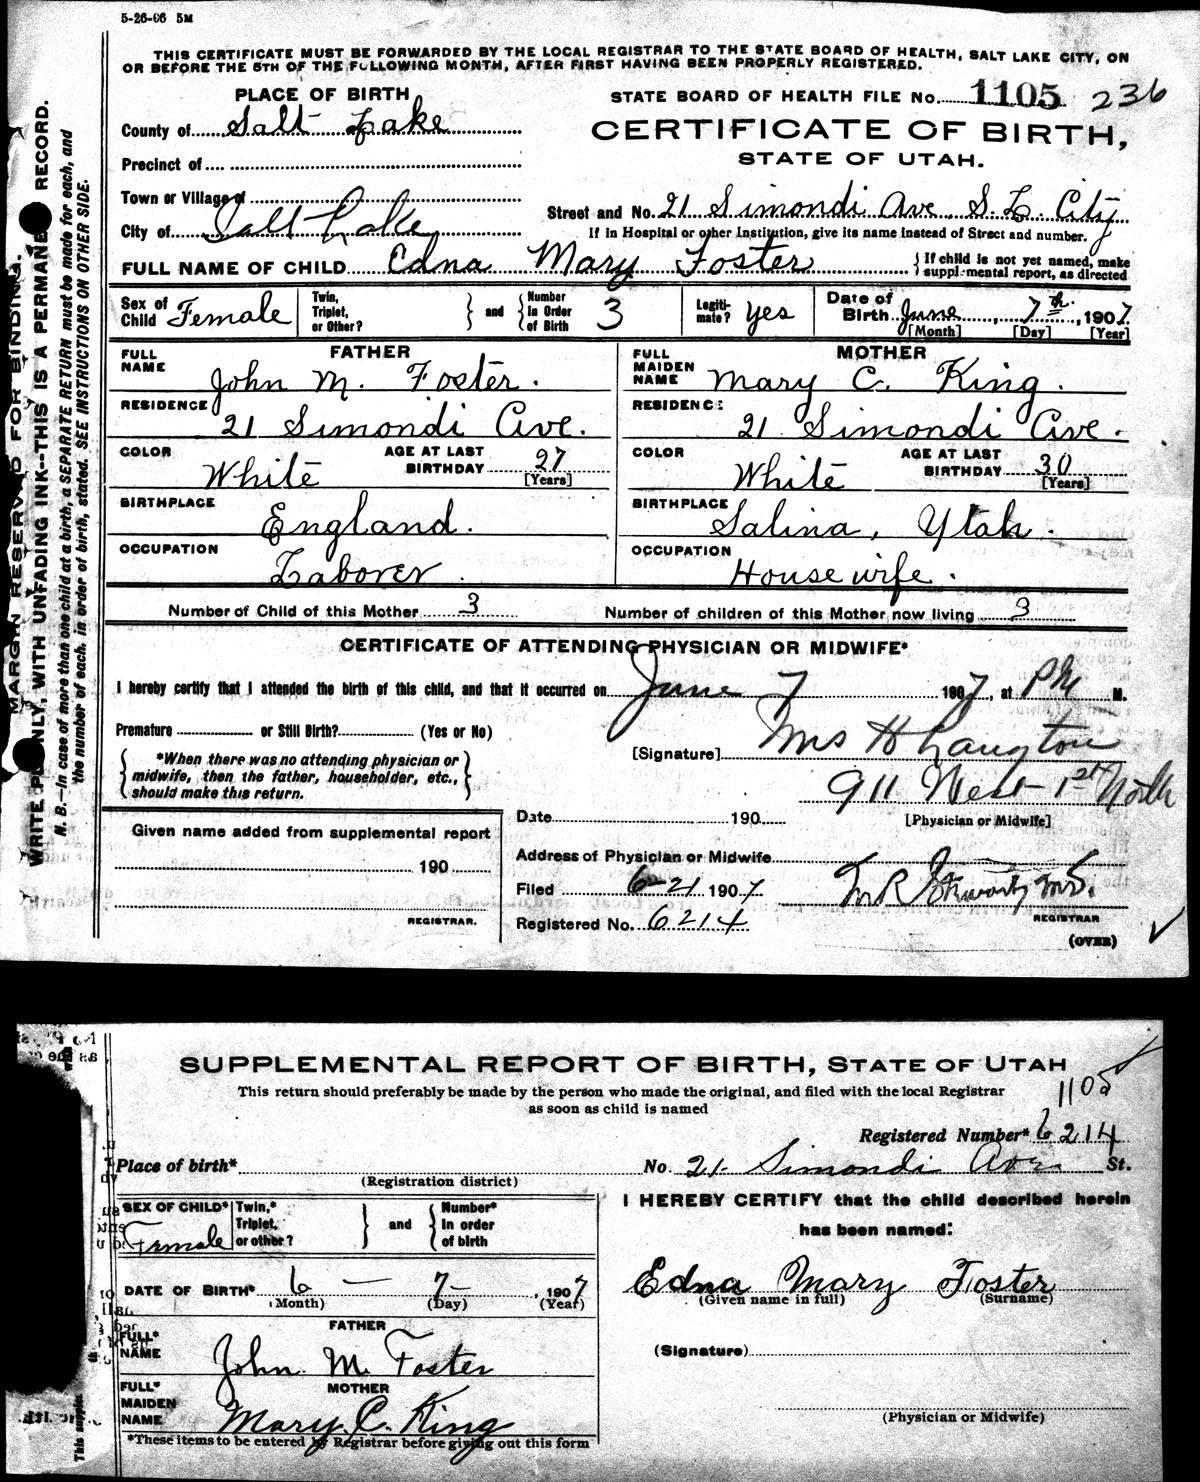 5-26-06 5M
THIS CERTIFICATE MUST BE FORWARDED BY THE LOCAL REGISTRAR TO THE STATE BOARD OF HEALTH, SALT LAKE CITY, ON
OR BEFORE THE 5TH OF THE FOLLOWING MONTH, AFTER FIRST HAVING BEEN PROPERLY REGISTERED.
MARGIN RESERVED FOR BINDING.
WRITE PLAINLY, WITH UNFADING INK--THIS IS A PERMANENT RECORD.
N. B.--In case of more than one child at a birth, a SEPARATE RETURN must be made for each, and
the number of each, in order of birth, stated. SEE INSTRUCTIONS ON OTHER SIDE.
PLACE OF BIRTH
STATE BOARD OF HEALTH FILE No. 1105 236
County of Salt Lake
CERTIFICATE OF BIRTH,
STATE OF UTAH.
Precinct of
Town or Village of
Street and No. 21 Simondi Ave S. L. City
City of Salt Lake
If in Hospital or other Institution, give its name instead of Street and number.
FULL NAME OF CHILD Edna Mary Foster
If child is not yet named, make
supplemental report, as directed
Sex of Child Female
Twin, Triplet, or Other? and Number In Order of Birth 3
Legitimate? Yes
Date of Birth June 7th, 1907
[Month] [Day] [Year]
FATHER
FULL NAME John M. Foster.
RESIDENCE 21 Simondi Ave.
COLOR White AGE AT LAST BIRTHDAY 27 [Years]
BIRTHPLACE England.
OCCUPATION Laborer.
MOTHER
FULL MAIDEN NAME Mary C. King.
RESIDENCE 21 Simondi Ave.
COLOR White AGE AT LAST BIRTHDAY 30 [Years]
BIRTHPLACE Salina, Utah.
OCCUPATION Housewife.
Number of Child of this Mother 3 Number of children of this Mother now living 3
CERTIFICATE OF ATTENDING PHYSICIAN OR MIDWIFE*
I hereby certify that I attended the birth of this child, and that it occurred on June 7 1907, at PM M.
Premature or Still Birth? (Yes or No)
[Signature] Mrs H Langton
*When there was no attending physician or
midwife, then the father, householder, etc.,
should make this return.
911 West 1st North
[Physician or Midwife]
Date 190
Given name added from supplemental report
190
REGISTRAR.
Address of Physician or Midwife
Filed 6-21 1907
REGISTRAR
Registered No. 6214
(OVER)
SUPPLEMENTAL REPORT OF BIRTH, STATE OF UTAH
This return should preferably be made by the person who made the original, and filed with the local Registrar
as soon as child is named
1105
Registered Number* 6214
Place of birth* No. 21 Simondi Ave St.
(Registration district)
SEX OF CHILD* Female
Twin,* Triplet, or other? and Number* In order of birth
DATE OF BIRTH* 6 - 7 - , 1907
(Month) (Day) (Year)
FATHER
FULL* NAME John M. Foster
MOTHER
FULL* MAIDEN NAME Mary C. King
*These items to be entered by Registrar before giving out this form
I HEREBY CERTIFY that the child described herein
has been named:
Edna Mary Foster
(Given name in full) (Surname)
(Signature)
(Physician or Midwife)